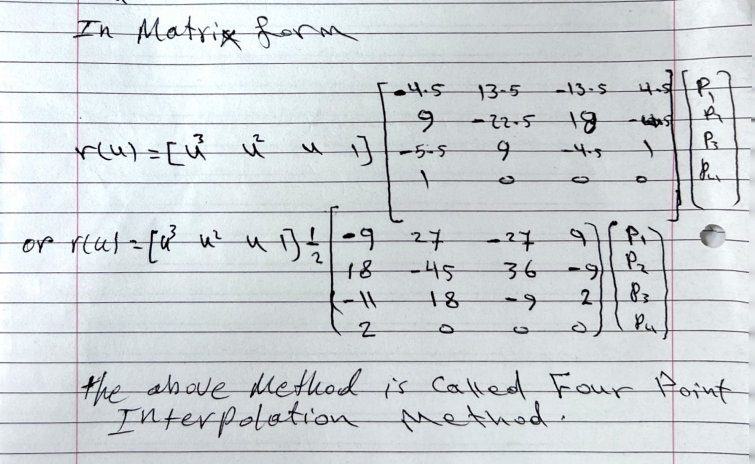 In Matrix form
r(u) = [u³ u² u 1] [-4.5 13.5 -13.5 4.5] [P₁]
[9 -22.5 18 -4.5] [P₂]
[-5.5 9 -4.5 1] [P₃]
[1 0 0 0] [P₄]
or r(u) = [u³ u² u 1] 1/2 [-9 27 -27 9] [P₁]
[18 -45 36 -9] [P₂]
[-11 18 -9 2] [P₃]
[2 0 0 0] [P₄]
the above Method is Called Four Point
Interpolation Method.